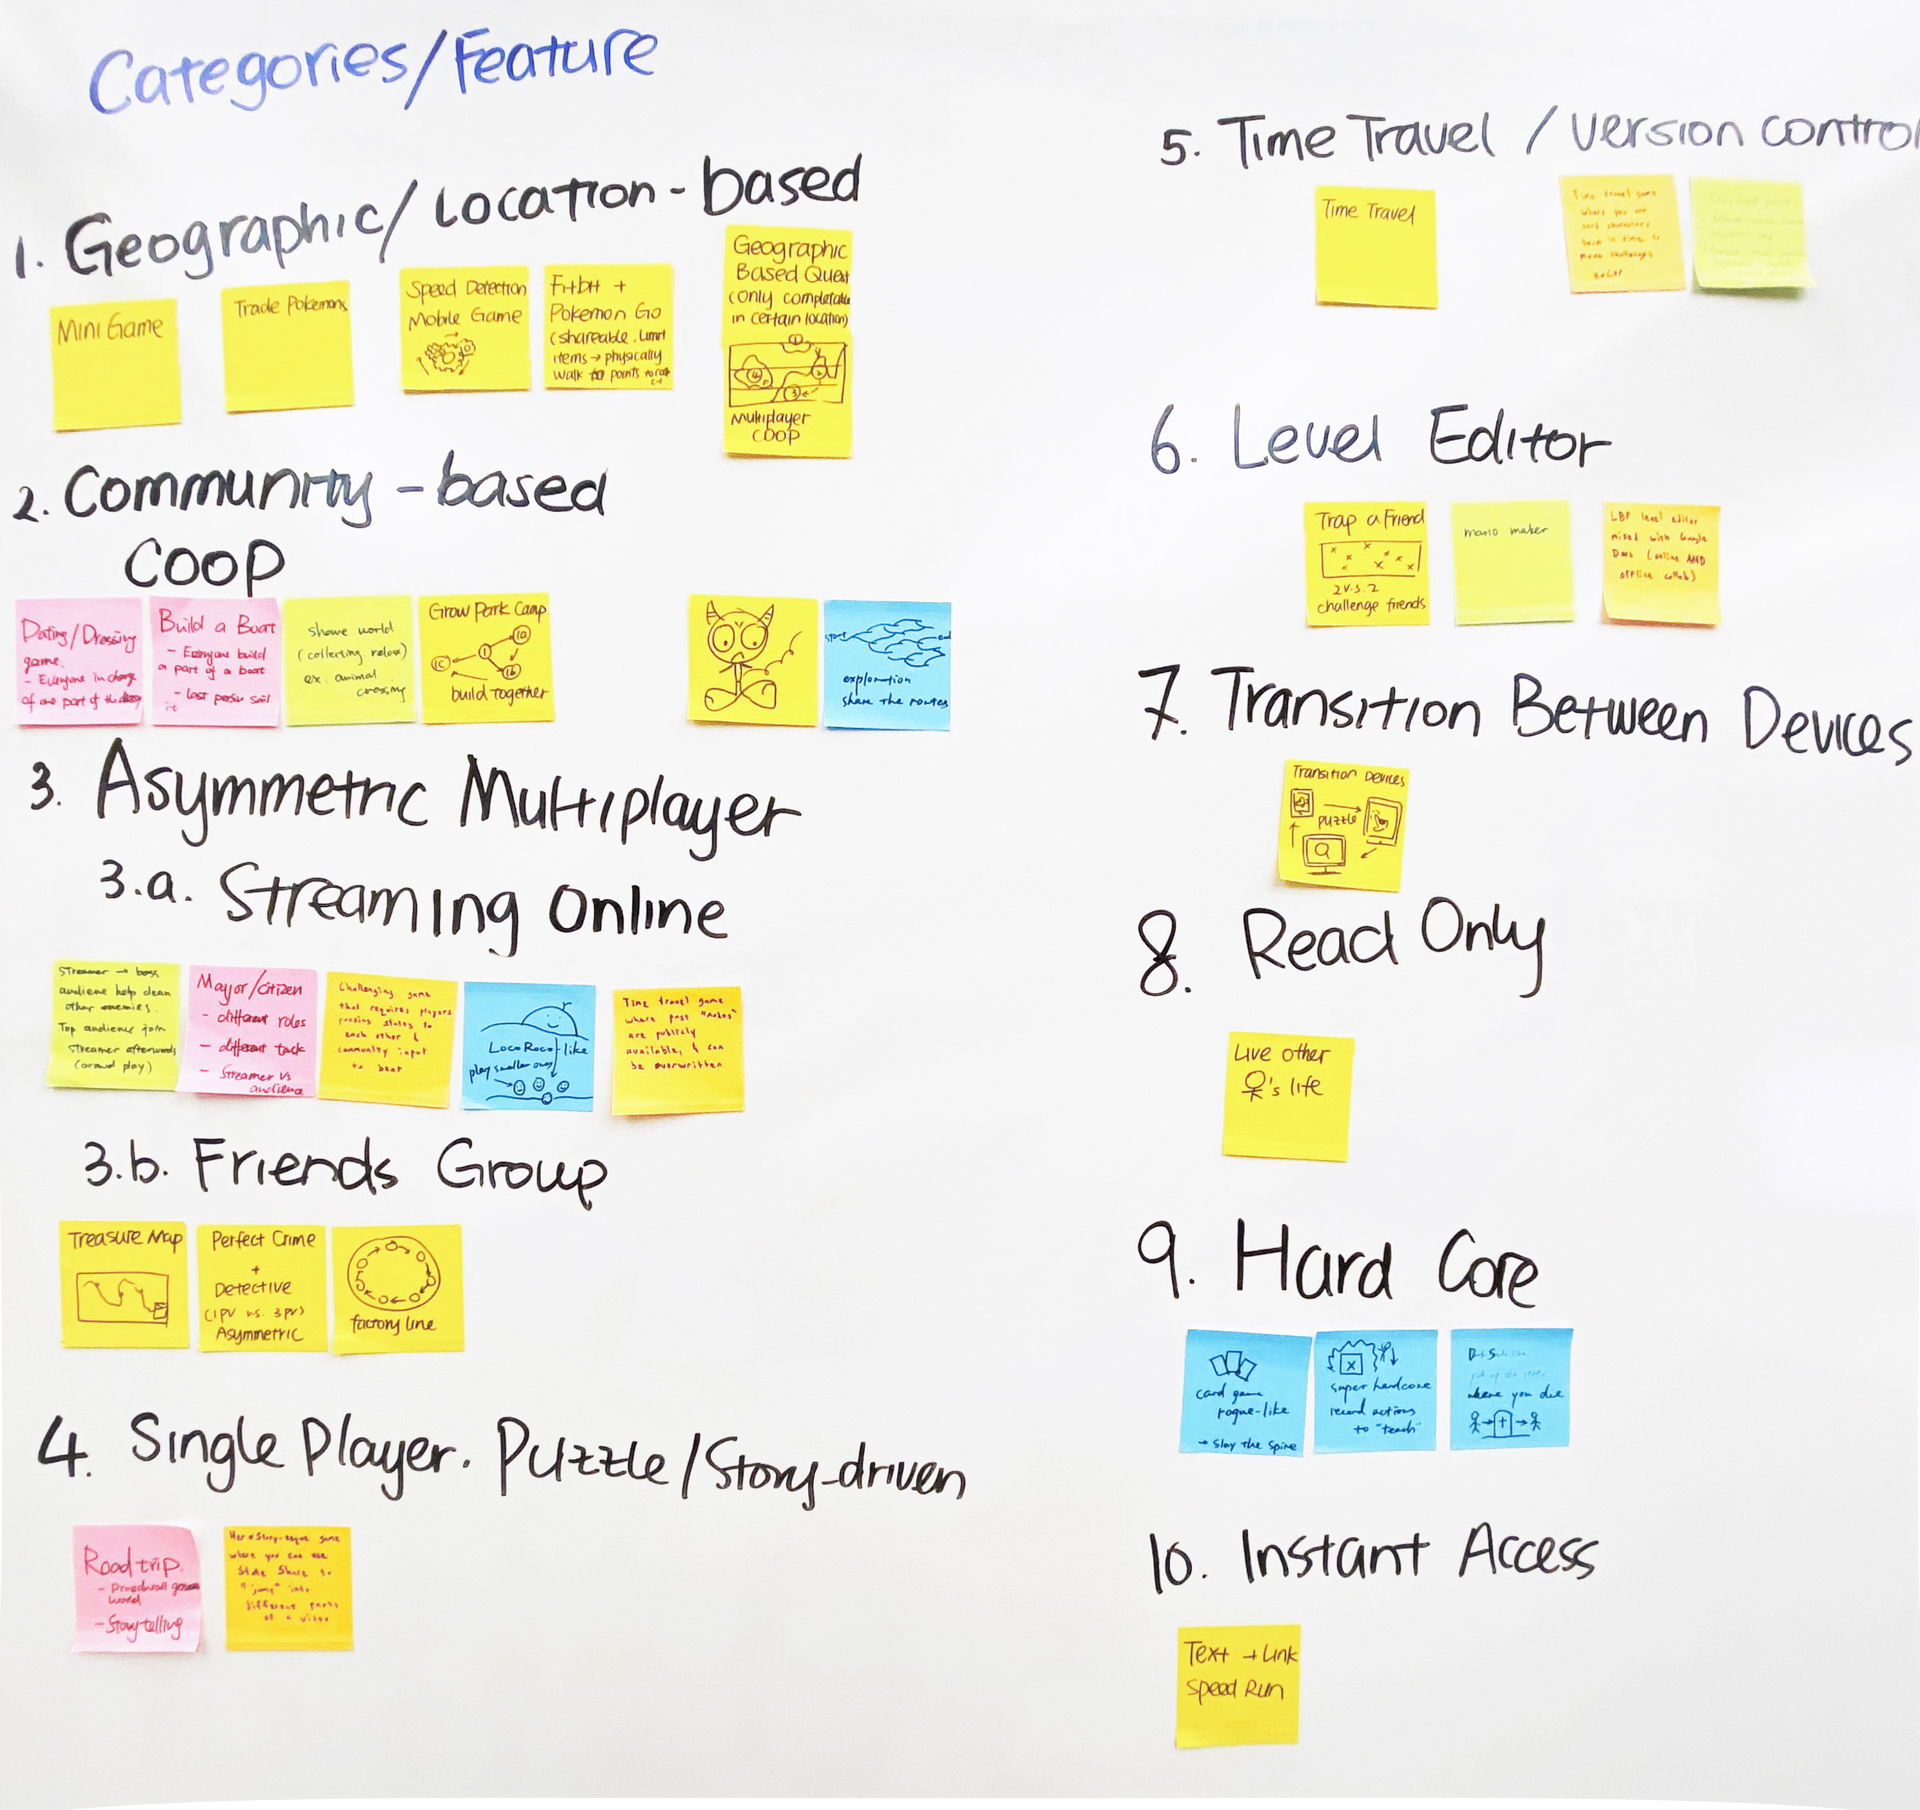 Categories/Feature
1. Geographic/Location-based
Mini Game
Trade Pokemons
Speed Detection
Mobile Game
Fitbit +
Pokemon Go
(shareable. Limit
items → physically
walk to points to
Geographic
Based Quest
(only completable
in certain location)
1
2
3
4
Multiplayer
COOP
2. Community-based
COOP
Dating/Dressing
game.
- Everyone in charge
of one part of the
Build a Boat
- Everyone build
a part of a boat
- Last person sail
it
share world
(collecting relax)
ex. animal
crossing
Grow Park Camp
1a
1
1c
1b
build together
start
end
exploration
share the routes
3. Asymmetric Multiplayer
3.a. Streaming Online
Streamer → boss
audience help clean
other enemies.
Top audience join
streamer afterwards
(crowd play)
Mayor/citizen
- different roles
- different task
- Streamer vs
audience
Challenging game
that requires players
passing states to
each other &
community input
to beat
LocoRoco-like
play smaller ones
Time travel game
where past "nodes"
are publicly
available, & can
be overwritten
3.b. Friends Group
Treasure Map
Perfect Crime
+
Detective
(1PV vs. 3PV)
Asymmetric
factory line
4. Single Player. Puzzle/Story-driven
Road trip.
- world
- Storytelling
Her Story-esque game
where you can use
State Share to
"jump" into
different parts
of a video
5. Time Travel / Version control
Time Travel
Time travel game
where you
back in time to
6. Level Editor
Trap a Friend
2 v.s. 2
challenge friends
mario maker
LBP level editor
mixed with Google
Docs (online AND
offline collab)
7. Transition Between Devices
Transition Devices
puzzle
8. Read Only
Live other
's life
9. Hard Core
card game
rogue-like
→ slay the spire
x
super hardcore
record actions
to "teach"
where you die
10. Instant Access
Text → Link
Speed Run